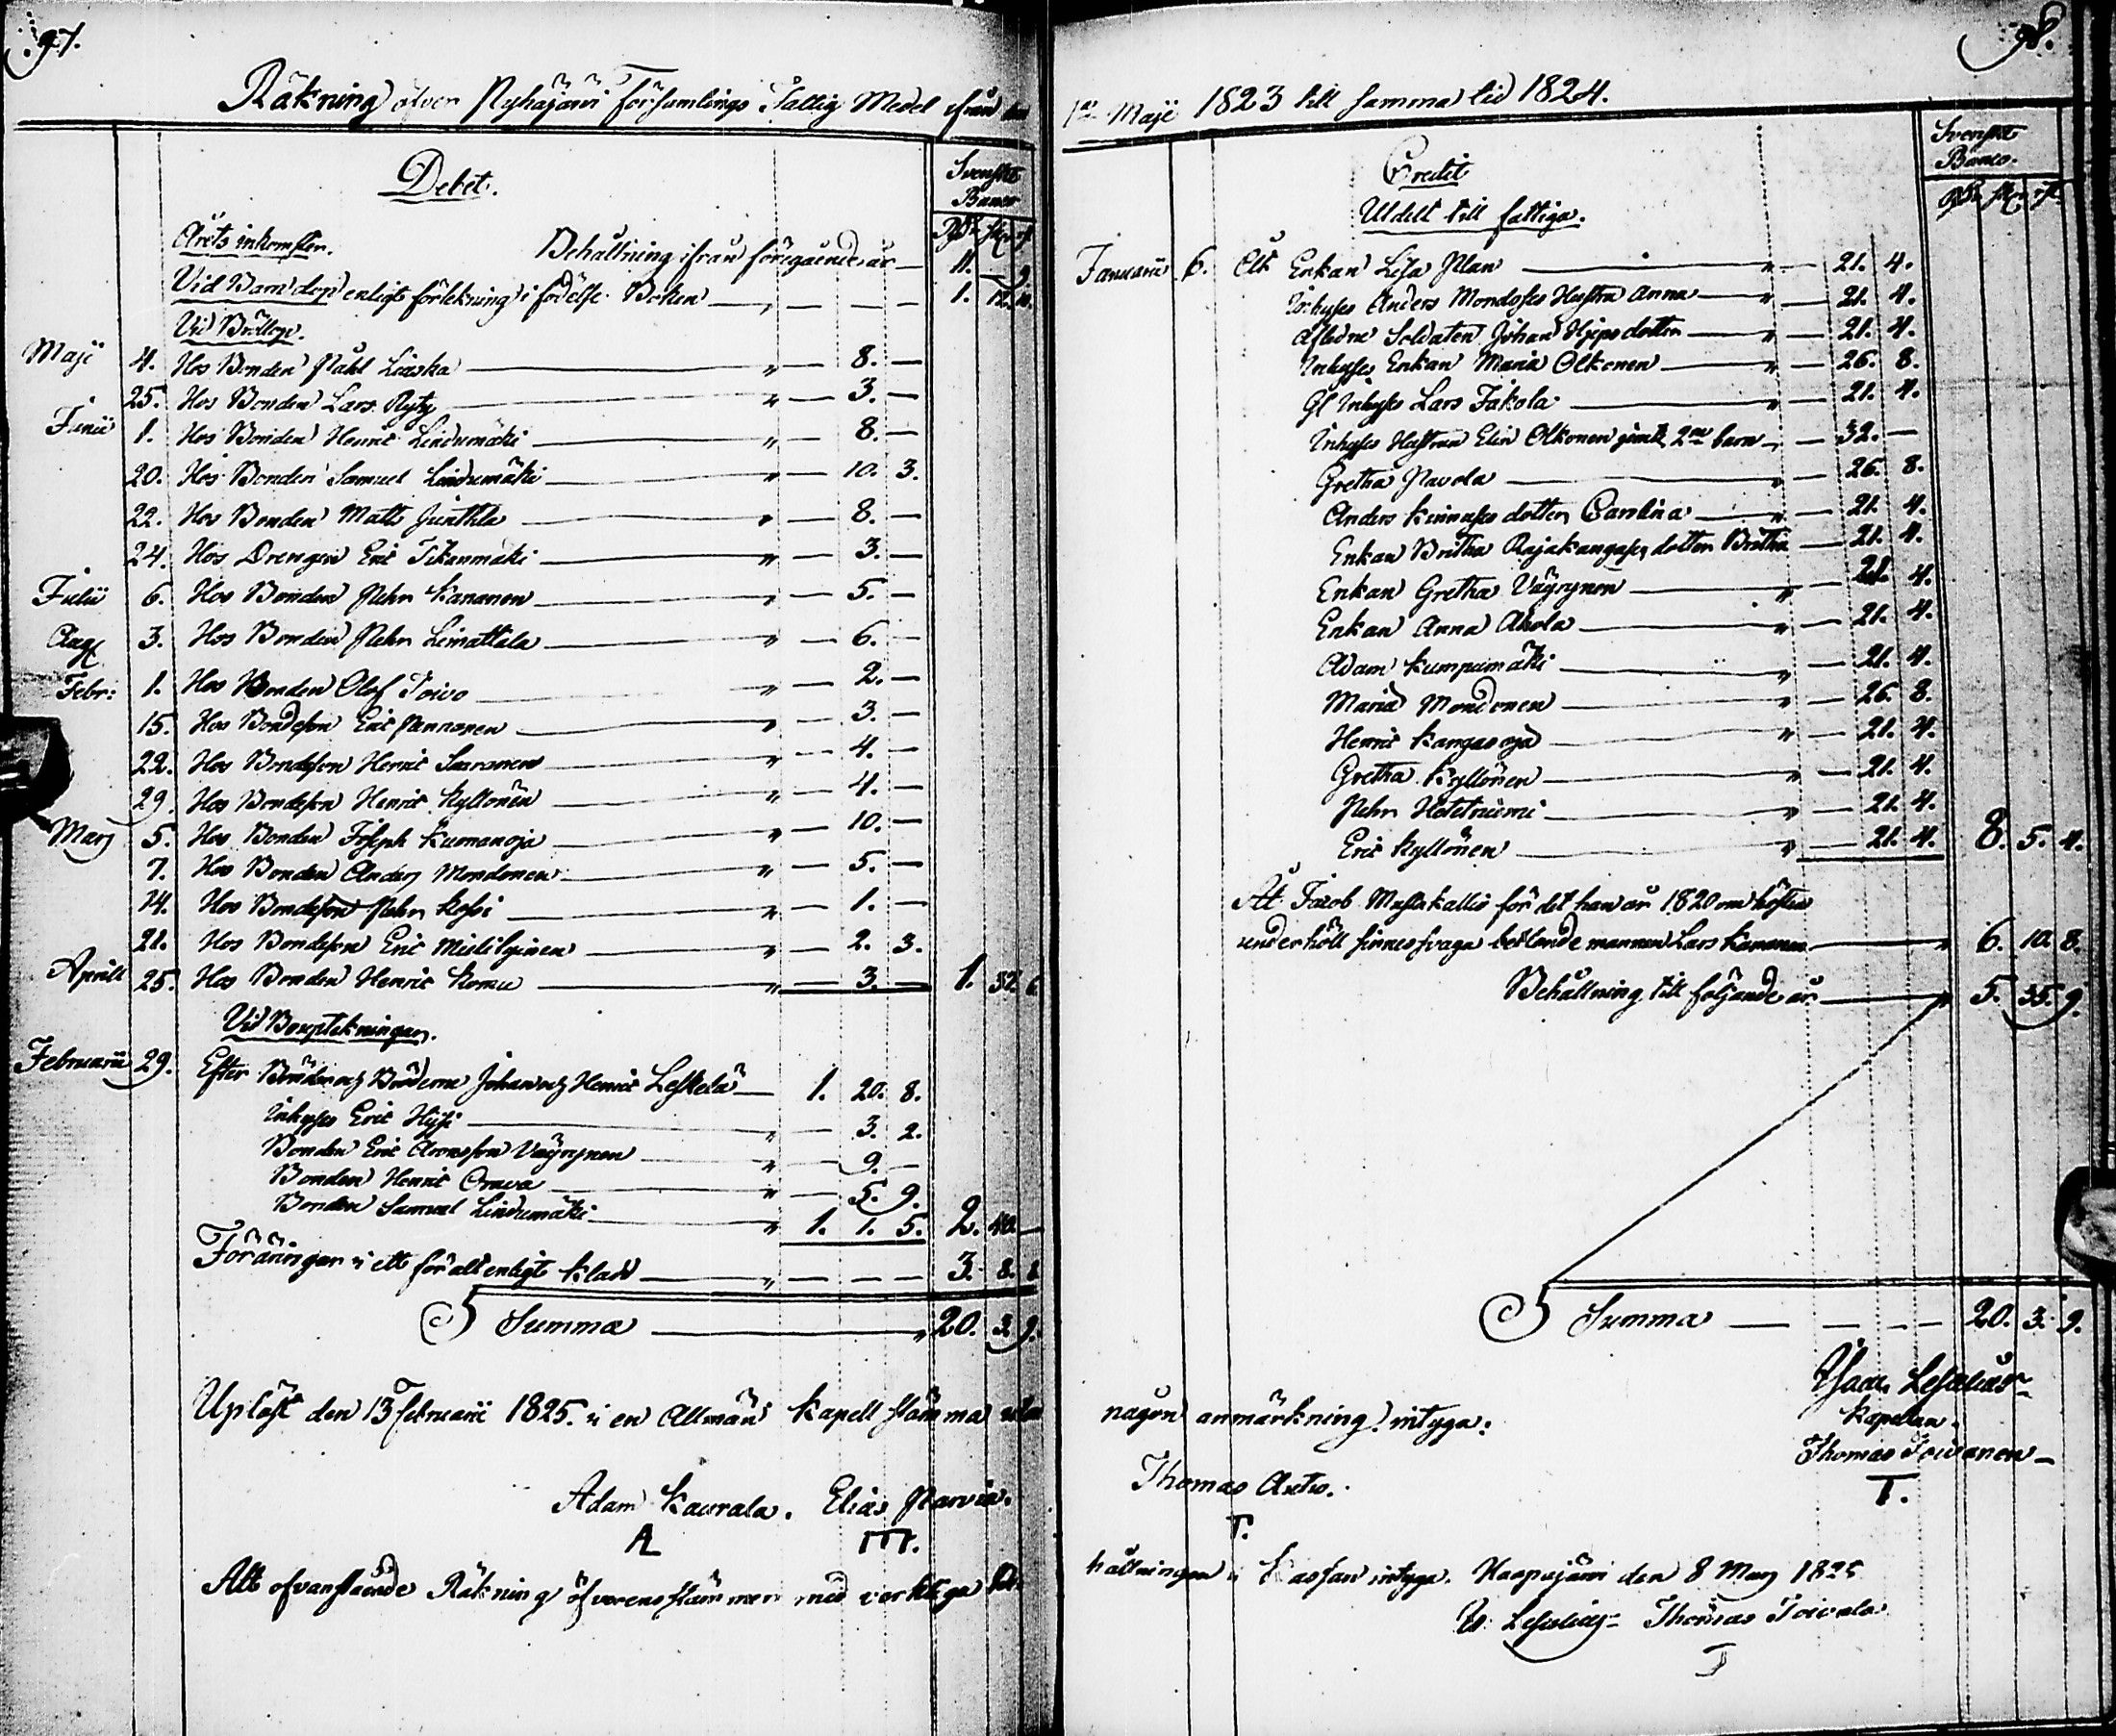 97.
Räkning öfver Pyhäjärvi Församlings Fattig Medel ifrån den
Debet.
Svenskt Banco
Rd sk. rst
Årets inkomster. Behållning ifrån föregående år 11. — 9.
Vid Barndop enligt förtekning i födelse Boken — 1. 12. 10.
Vid Bröllop.
Maji 4. Hos Bonden Påhl Liuska " — 8. —
25. Hos Bonden Lars Ryty " — 3. —
Junii 1. Hos Bonden Henric Lindumäki " — 8. —
20. Hos Bonden Samuel Lindumäki " — 10. 3.
22. Hos Bonden Matts Junttila " — 8. —
24. Hos Drengen Eric Tikanmäki " — 3. —
Julii 6. Hos Bonden Pehr Kananen " — 5. —
Aug. 3. Hos Bonden Pehr Limattala " — 6. —
Febr: 1. Hos Bonden Olof Toivo " — 2. —
15. Hos Bondeson Eric Pannanen " — 3. —
22. Hos Bondeson Henric Saaranen " — 4. —
29. Hos Bondeson Henric Kyllönen " — 4. —
Mars 5. Hos Bonden Joseph Kuonanoja " — 10. —
7. Hos Bonden Anders Mondonen " — 5. —
14. Hos Bondeson Pehr Kossi " — 1. —
21. Hos Bondeson Eric — 2. 3.
Aprill 25. Hos Bonden Henric Komu " — 3. — 1. 37. 6.
Vid Bouptekningar.
Februarii 29. Efter Bönderne och Bröderne Johan och Henric Leskelä — 1. 20. 8.
Inhyses Eric Hyssi " — 3. 2.
Bonden Eric Aronsson Väyrynen " — 9. —
Bonden Henric Orava " — 5. 9.
Bonden Samuel Lindumäki " 1. 1. 5. 2. 40. —
Föräringar i ett för alt enligt klad " — — — 3. 8. 8.
Summa " 20. 3. 9.
Upläst den 13 Februarii 1825. i en Allmän Kapell stämma utan
Adam Kaurala. Elias Parvia.
A III.
Alt ofvanstående Räkning öfverensstämmer med verkliga be-
98.
1sta Maji 1823 till samma tid 1824.
Credit
Svenskt Banco.
Rd sk. rst
Utdelt till fattiga.
Januarii 6. Åt Enkan Lisa Plan " — 21. 4.
Inhyses Anders Mondoses Hustru Anna " — 21. 4.
Aflidne Soldaten Johan dotter " — 21. 4.
Inhyses Enkan Maria Olkonen " — 26. 8.
Gl Inhyses Lars Jakola " — 21. 4.
Inhyses Hustrun Elin Olkonen jemte 2ne barn " — 32. —
Gretha Pavola " — 26. 8.
Anders Kinnuses dotter Carolina " — 21. 4.
Enkan Britha Rajakangases dotter Britha — 21. 4.
Enkan Gretha Väyrynen " — 21. 4.
Enkan Anna Ahola " — 21. 4.
Adam Kumpumäki " — 21. 4.
Maria Mondonen " — 26. 8.
Henric Kangasoja " — 21. 4.
Gretha Kyllönen " — 21. 4.
Pehr Hetetniemi " — 21. 4.
Eric Kyllönen " — 21. 4. 8. 5. 4.
Åt Jacob Mustakallio för det han år 1820 om hösten
underhöll sinnessvaga betlande mannen Lars Kananen " 6. 10. 8.
Behållning till följande år " 5. 35. 9.
Summa — — — — 20. 3. 9.
någon anmärkning intyga.
Isaac Lescelius
Kapellan.
Thomas Toivanen
T.
Thomas Autio.
T.
hållningen i Kassan intyga. Haapajärvi den 8 Mars 1825
Is. Lescelius Thomas Toivola
T